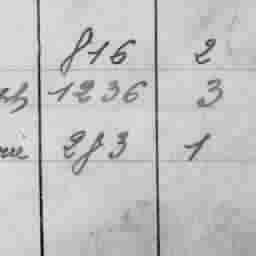 816 2
1236 3
283 1